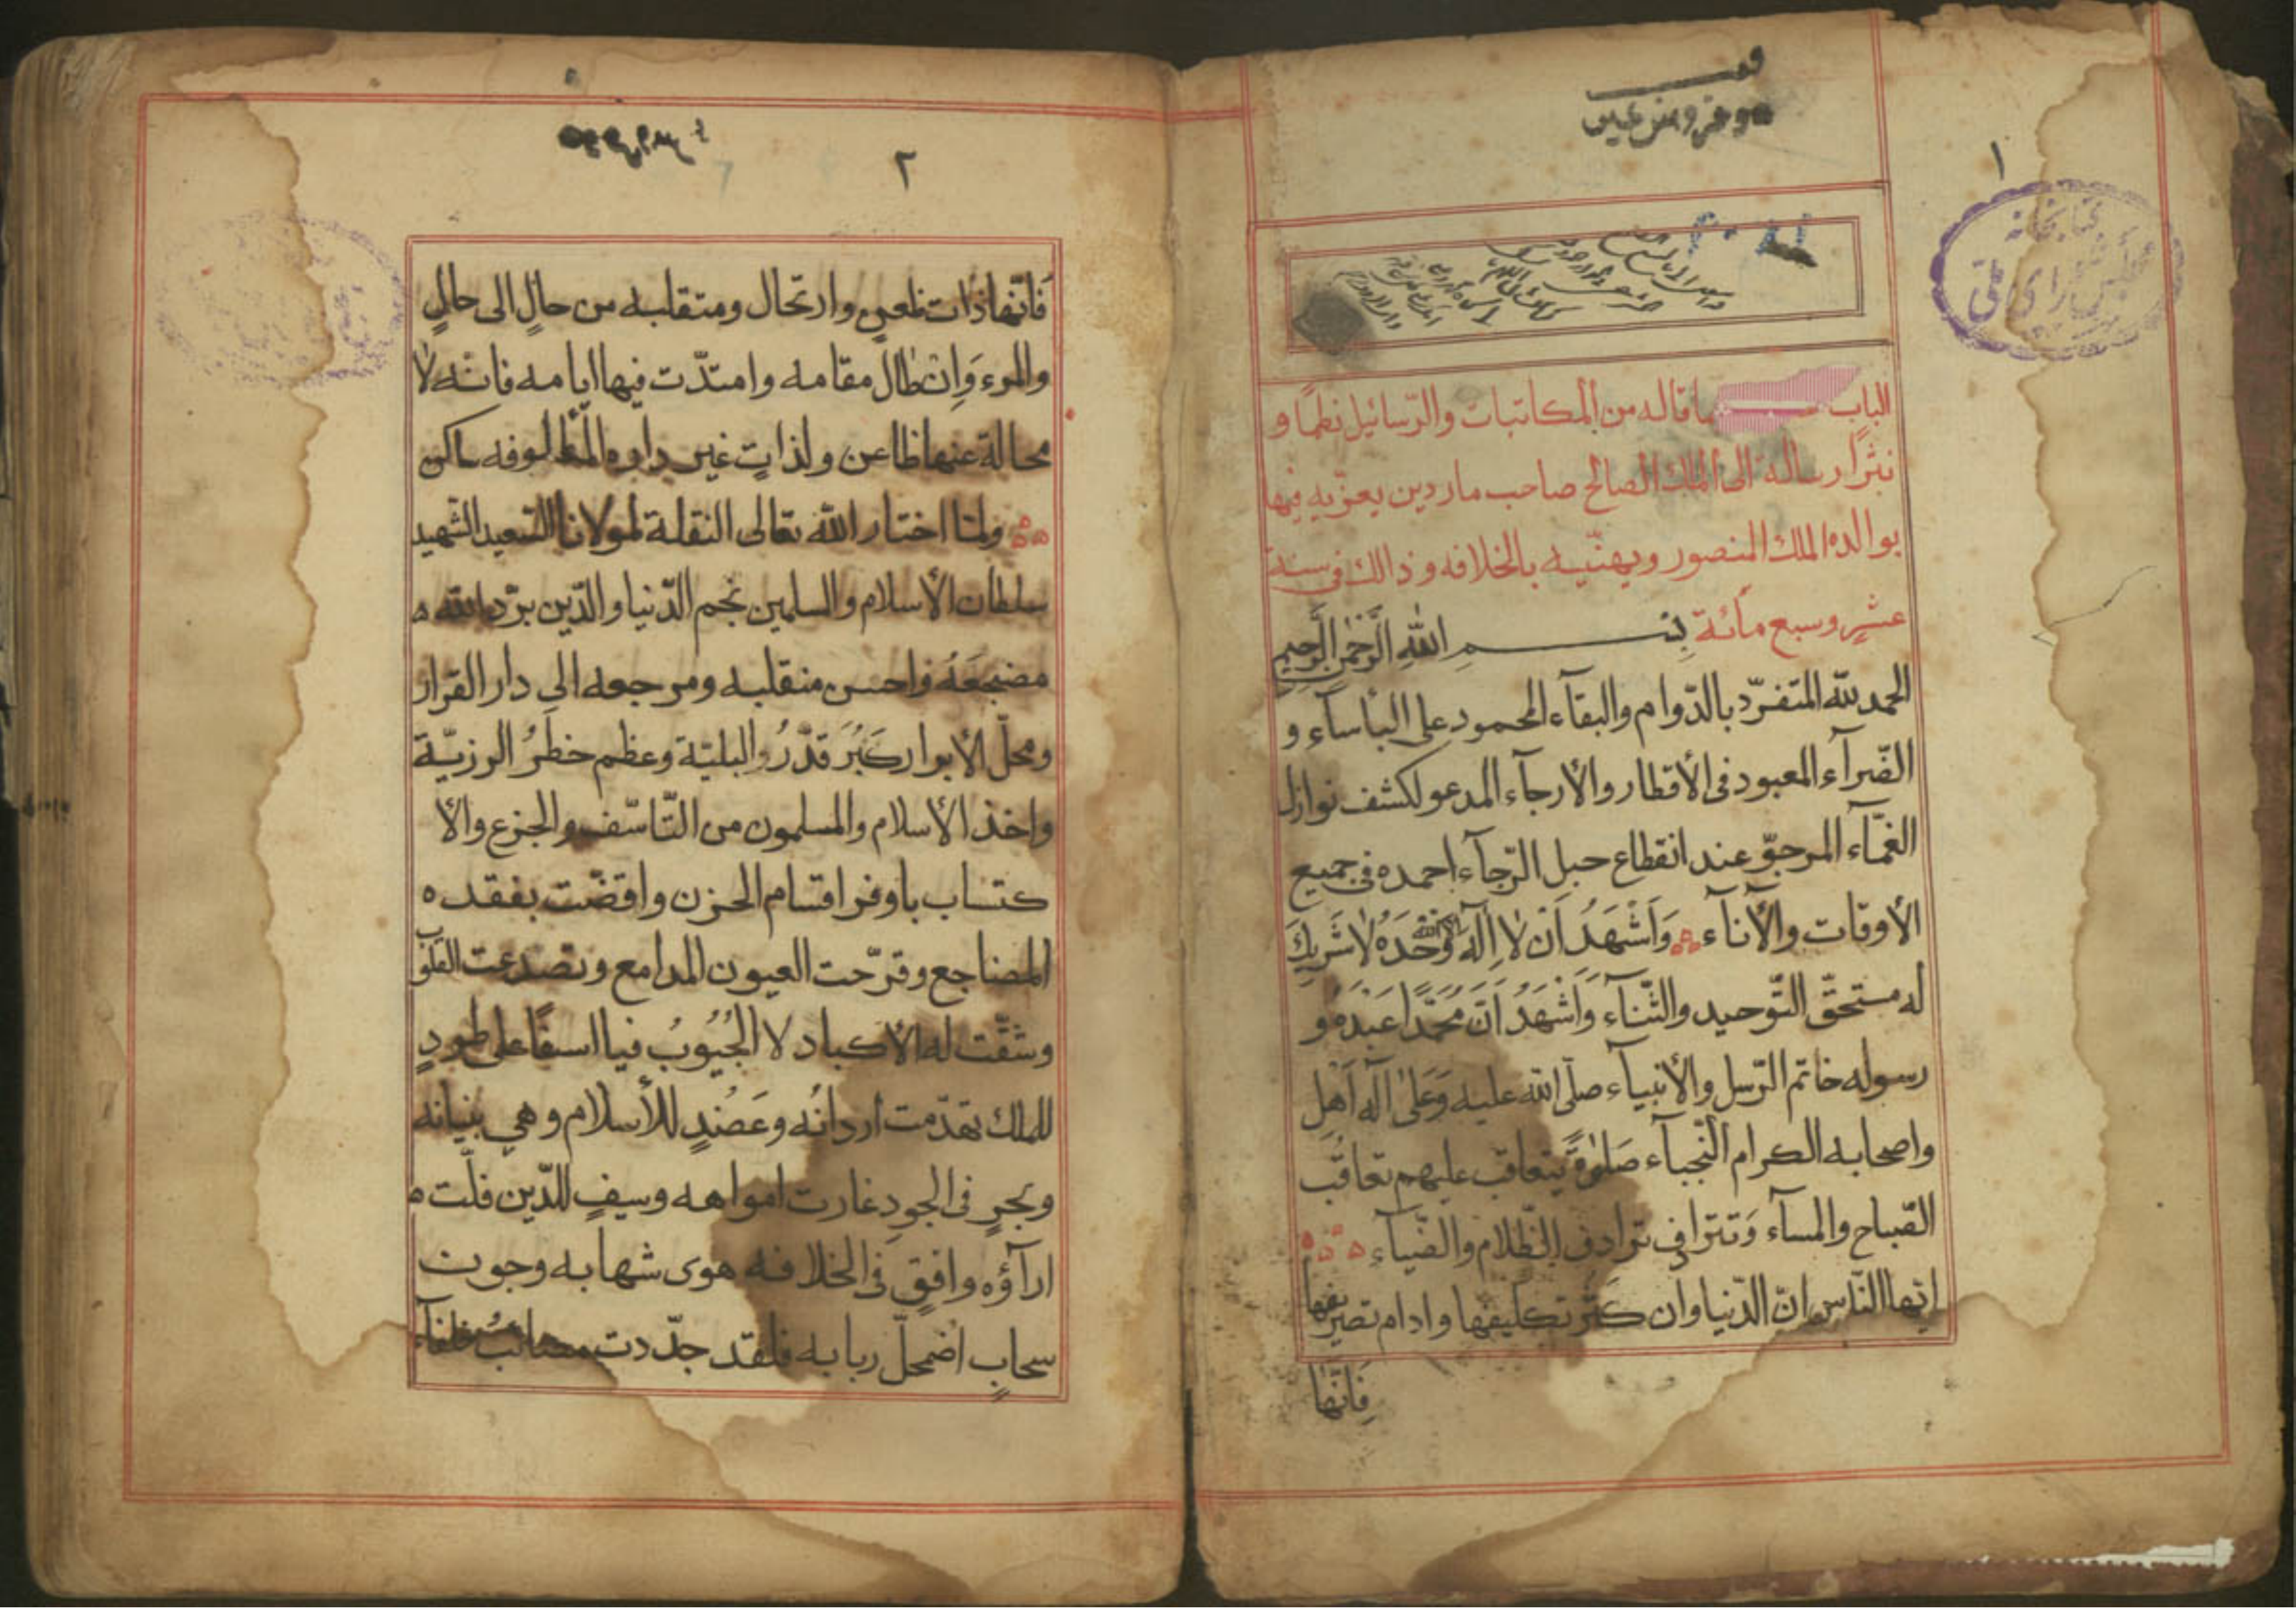 وقف
١
كتابخانه
مجلس شورای ملی
الباب ما قاله من المكاتبات والرّسائيل نظمًا و
نثرًا رسالة الى الملك الصالح صاحب ماردين يعزّيه فيها
بوالده الملك المنصور ويهنّيه بالخلافه وذالك فى سنة
عشرٍ وسبع مأئة بِسْمِ اللهِ الرَّحْمٰنِ الرَّحيمِ
الحمد للّه المتفرّد بالدّوام والبقآء المحمود على البأسآء و
الضّرآء المعبود فى الأقطار والأرجآء المدعو لكشف نوازل
الغمّآء المرجوّ عند انقطاع حبل الرّجآء احمده فى جميع
الأوقات والآنآء وَاَشْهَدُ اَنْ لاٰ اِلٰهَ اِلّا اللّه وَحْدَهُ لاٰ شَريكَ
له مستحقّ التّوحيد والثّنآء وَاَشْهَدُ اَنَّ مُحَمَّدًا عَبْدَهُ وَ
رسوله خاتم الرّسل والأنبيآء صلّى اللّه عليه وَعَلىٰ آلِهِ اَهْل
واصحابه الكرام النّجبآء صَلوٰةً يتعاقب عليهم تعاقُب
الصّباح والمسآء وَتترادف ترادف الظّلام والضّيآء
ايّها النّاس انّ الدّنيا وان كثر تكليفها وادام تصريفها
فَاِنّها
٢
فَاِنّها ذات ظعنٍ وارتحال ومتقلبه من حالٍ الى حالٍ
والمرء وَاِنْ طٰالَ مقامه وامتدّت فيها ايامه فانّه لاٰ
محالة عنها ظاعن ولذاتٍ غير داره المألوفه ساكن
ولمّا اختار اللّه تعالى النقلة لمولانا السّعيد الشّهيد
سلطان الأسلام والمسلمين نجم الدّنيا والدّين برّد اللّه
مضجَعَهُ واحسن منقلبه ومرجعه الى دار القرار
ومحلّ الأبرار كَبُرَ قدْرُ البليّة وعظم خطَرُ الرزيّة
واخذ الأسلام والمسلمون من التّأسّف والجزع والأ
كتساب باوفر اقسام الحزن واقضّت بفقده
المضاجع وقرّحت العيون المدامع وتصدعت القلوب
وشقّت له الأكباد لا الجُيُوبُ فيا اسفًا على طودٍ
للملك تهدّمت اردانُه وعَضُدٍ للأسلام وهى بنيانه
وبحرٍ فى الجودِ غارت امواهه وسيفٍ للدّين فلّت
ارآؤه وافقٍ فى الخلافه هوى شهابه وجون
سحابٍ اضمحلّ ربابه فلقد جدّدت مصائب خلفآء